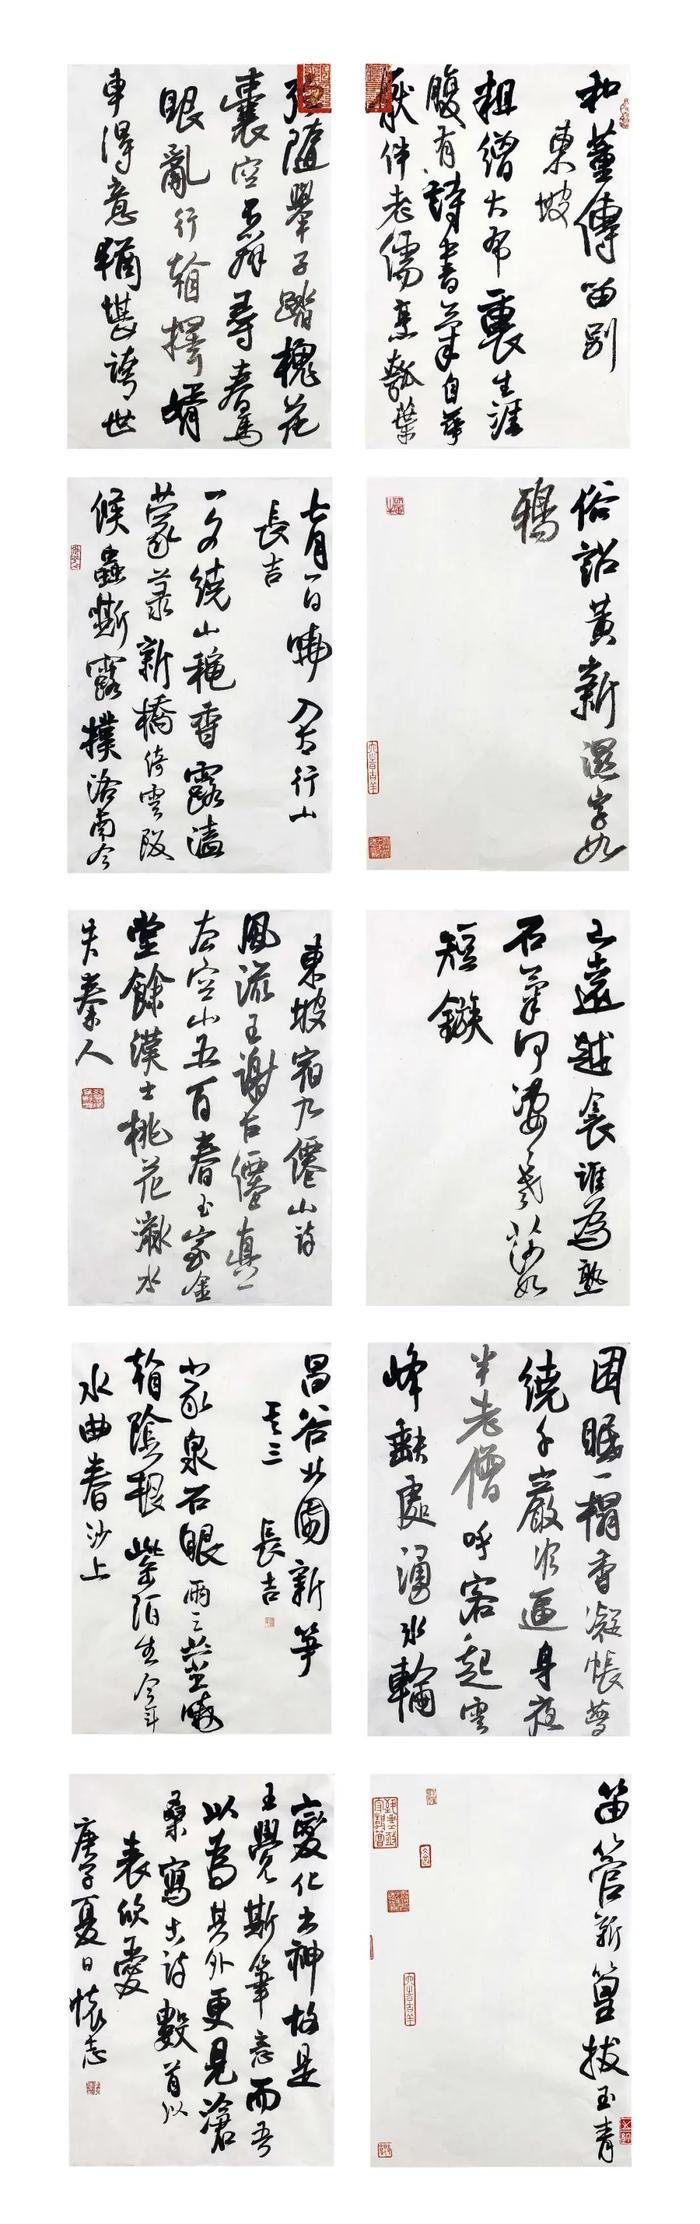 和董傳留別
東坡
粗繒大布裹生涯
腹有詩書氣自華
厭伴老儒烹瓠葉
強隨舉子踏槐花
囊空不辦尋春馬
眼亂行看擇婿
車得意猶堪誇世
俗詔黃新濕字如
鴉
七月一日曉入太行山
長吉
一夕繞山穐香露溘
蒙菉新橋倚雲阪
候蟲嘶露撲洛南今
已遠越衾誰為熟
石氣何淒淒老莎如
短鏃
東坡宿九僊山詩
風流王謝古僊真一
去空山五百春玉室金
堂餘漢士桃花流水
失秦人
困眠一榻香凝帳夢
繞千巖冷逼身夜
半老僧呼客起雲
峰缺處湧冰輪
昌谷北園新筍
其三 長吉
家泉石眼兩三莖曉
看陰根紫陌生今年
水曲春沙上
笛管新篁拔玉青
變化出神故是
王覺斯筆意而吾
以為其外更見滄
桑寫古詩數首以
表欣愛
庚子夏日懷志